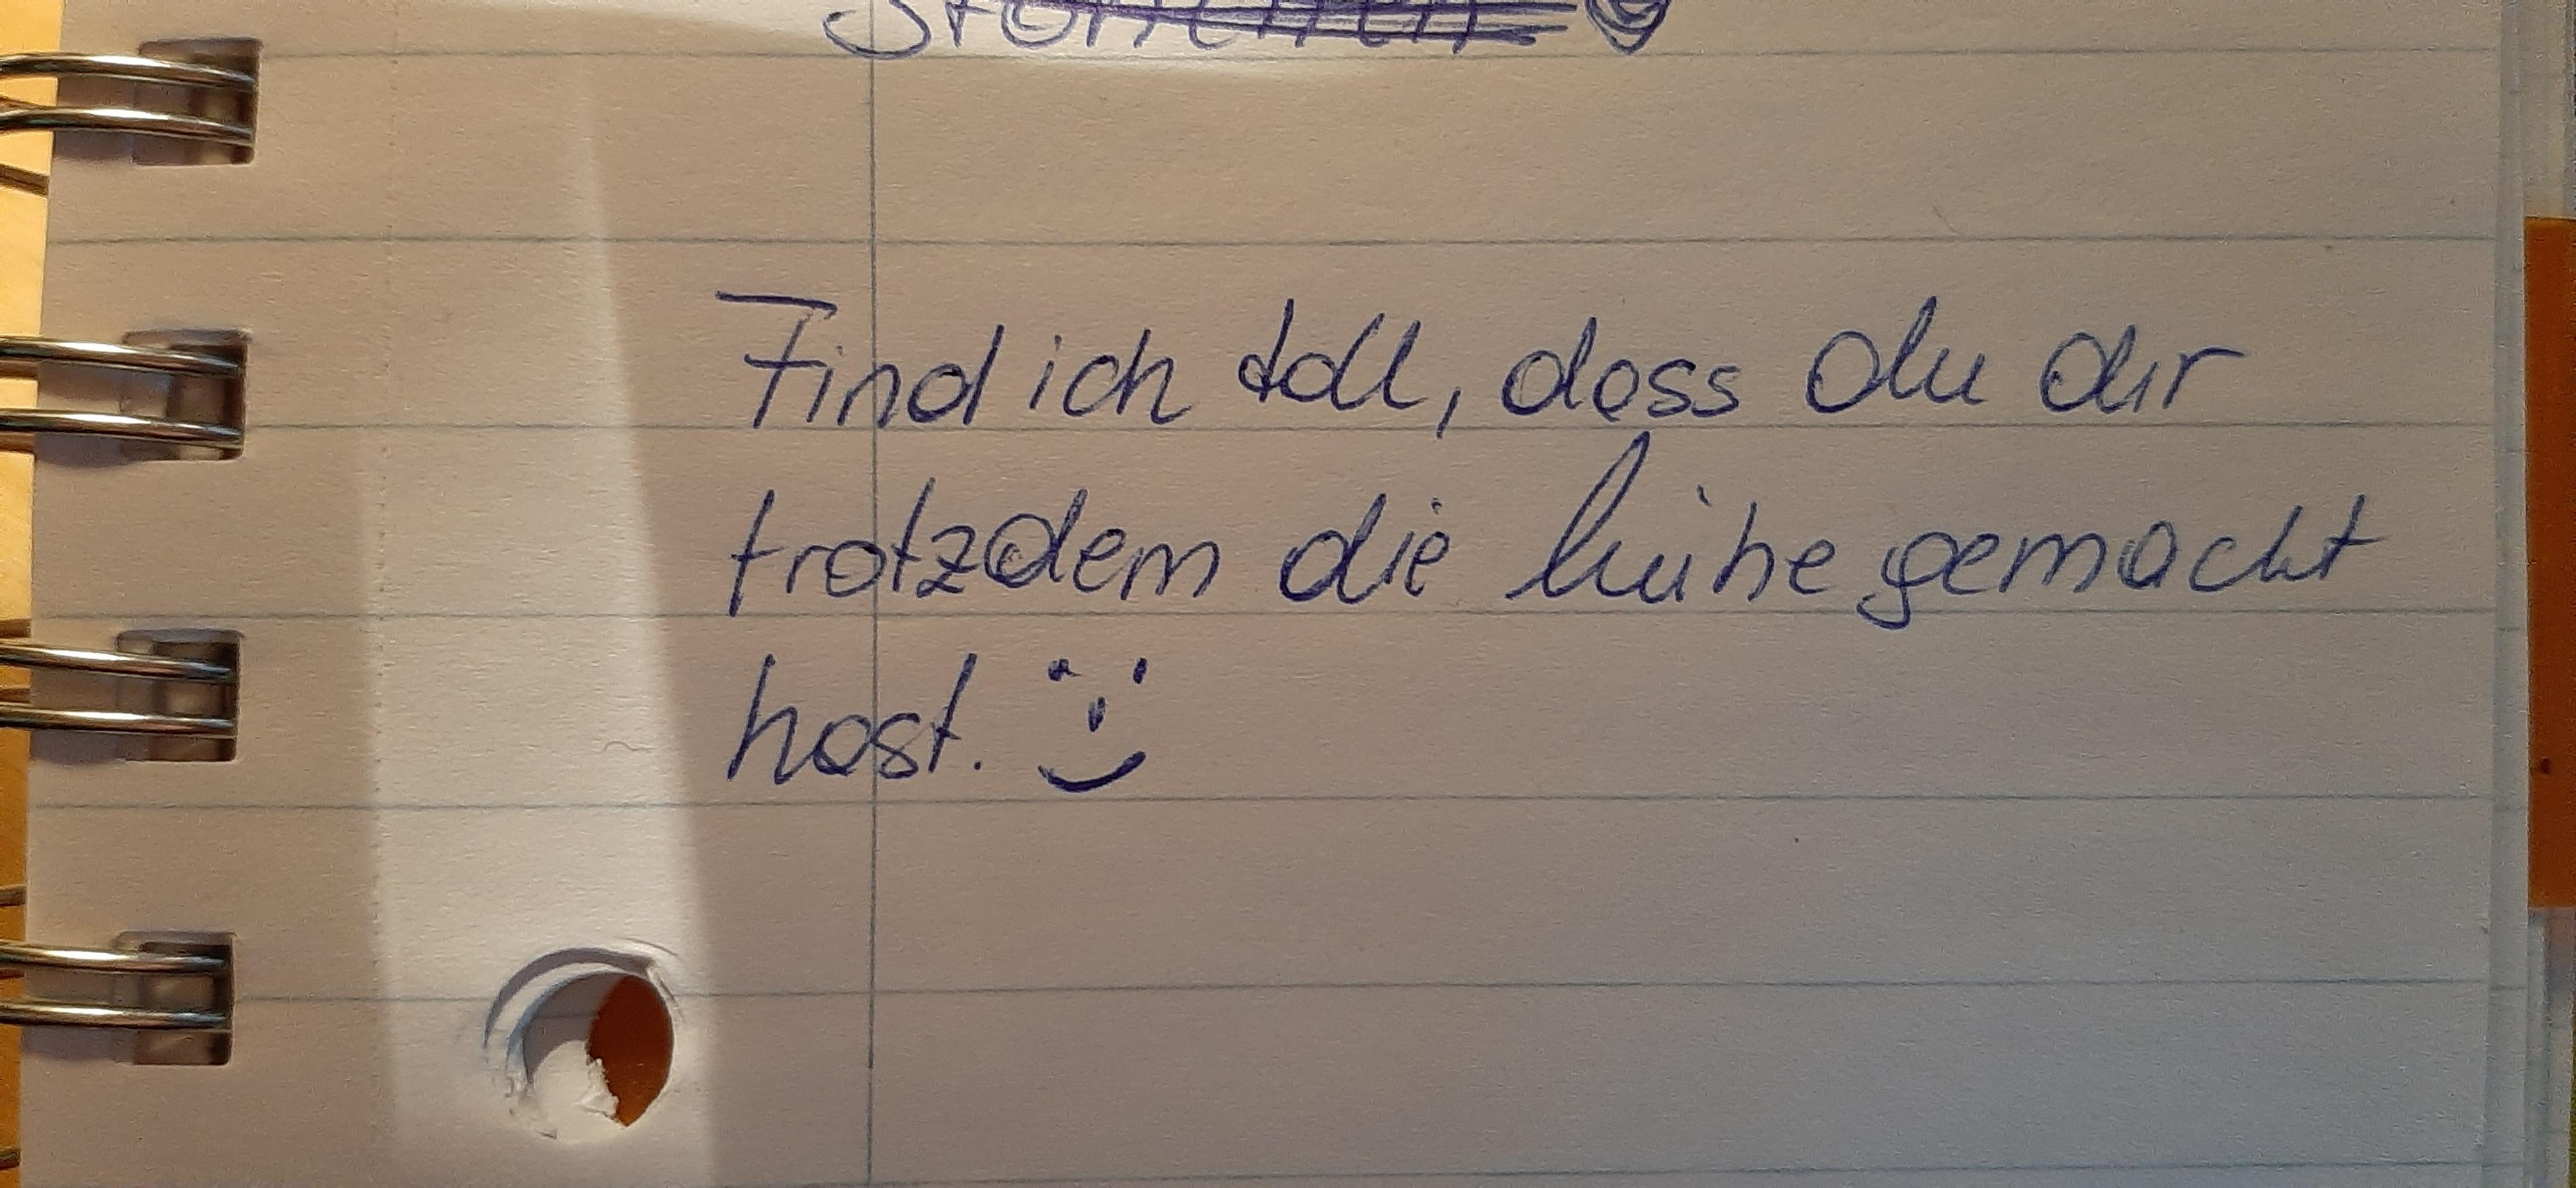 Find ich toll, dass du dir
trotzdem die Mühe gemacht
hast. :)